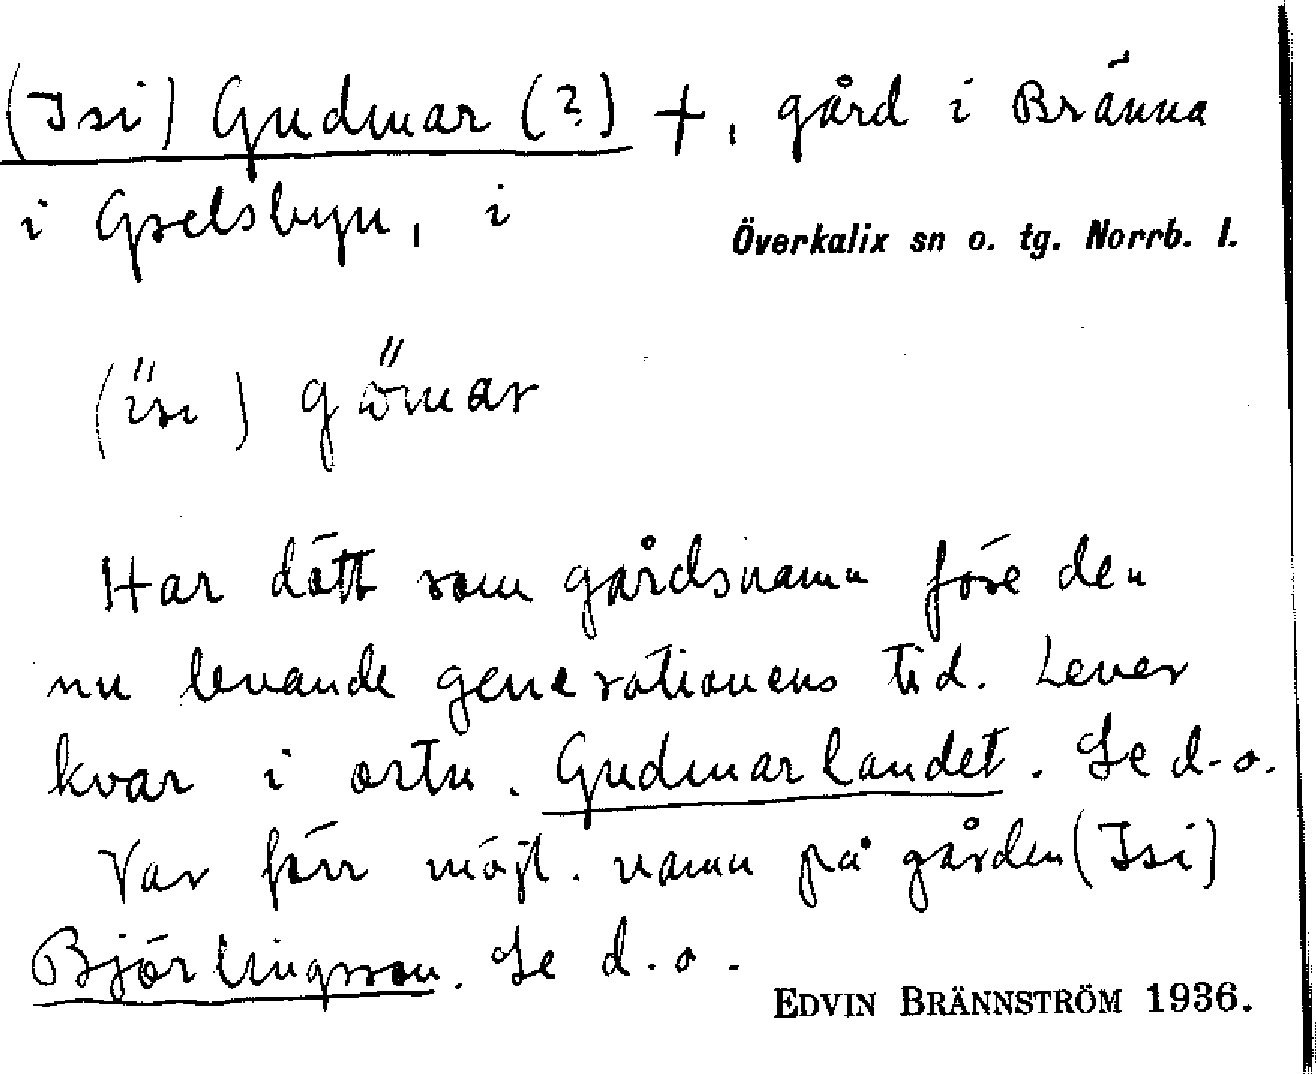 (Isi) Gudmar (?) +, gård i Bränna
i Grelsbyn, i
Överkalix sn o. tg. Norrb. l.
(ısı) gömar
Har dött som gårdsnamn före den
nu levande generationens tid. Lever
kvar i ortn. Gudmarlandet. Se d.o.
Var förr möjl. namn på gården (Isi)
Björlingsson. Se d.o.
EDVIN BRÄNNSTRÖM 1936.